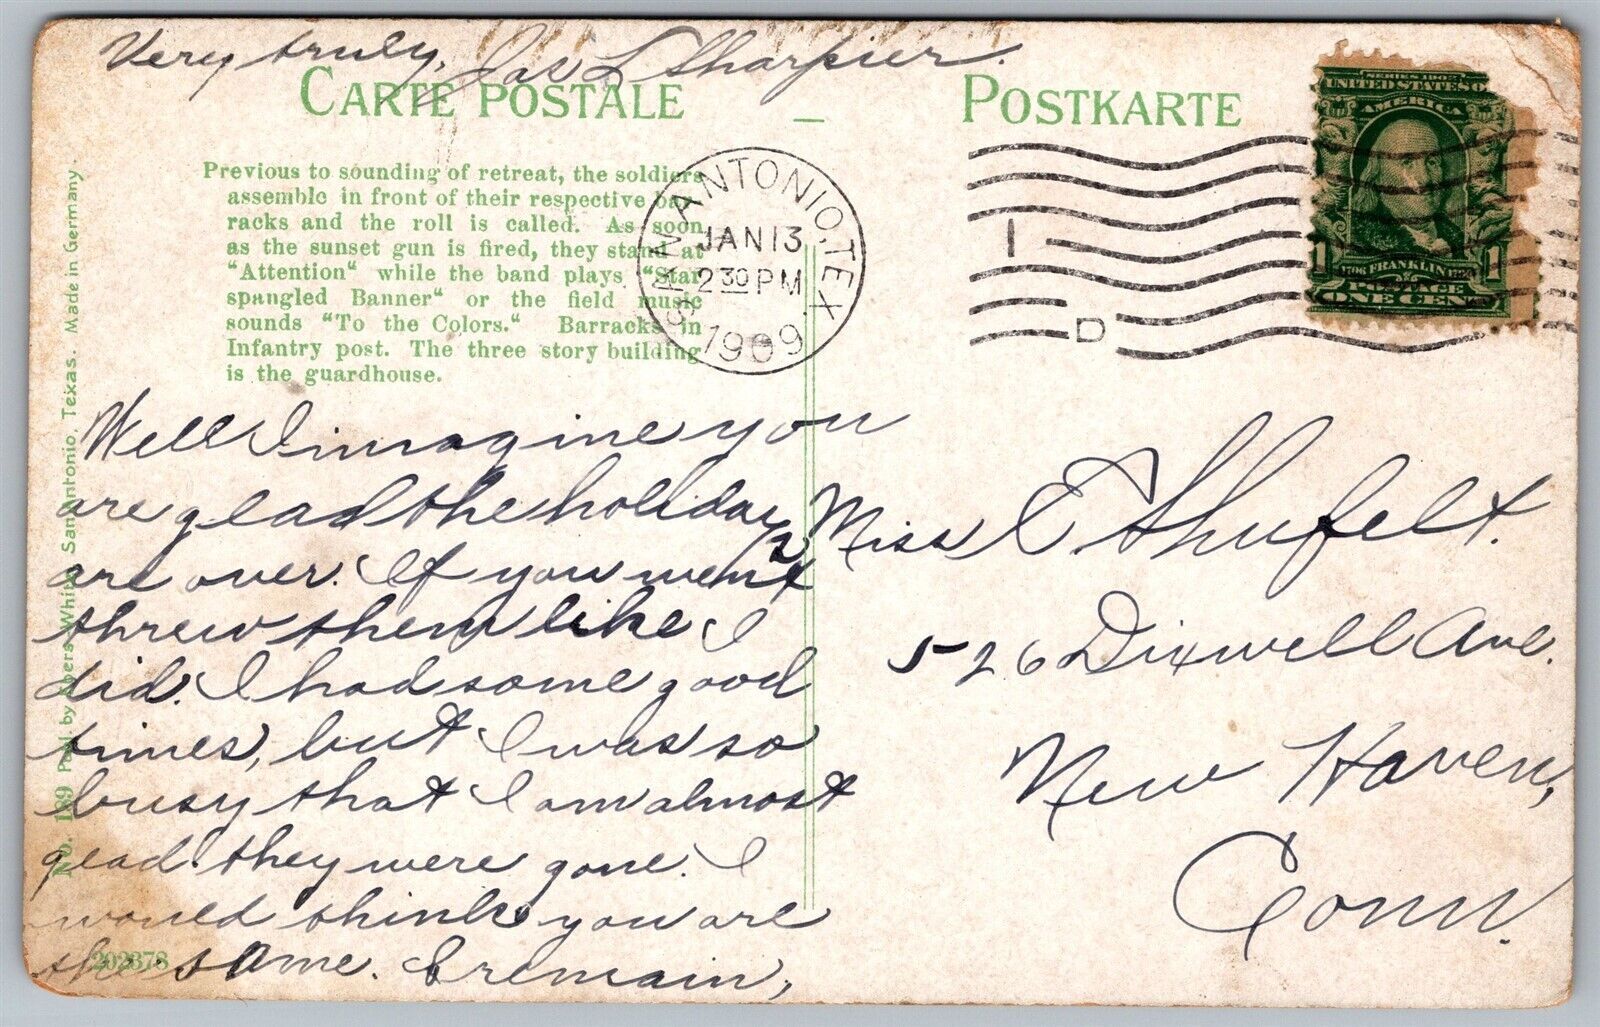 Very truly, Jas L Sharpier.
CARTE POSTALE – POSTKARTE
Previous to sounding of retreat, the soldiers
assemble in front of their respective bar-
racks and the roll is called. As soon
as the sunset gun is fired, they stand at
"Attention" while the band plays "Star
spangled Banner" or the field music
sounds "To the Colors." Barracks in
Infantry post. The three story building
is the guardhouse.
No. 189 Publ by Ebers-White San Antonio, Texas. Made in Germany.
SAN ANTONIO, TEX.
JAN 13
2 30 PM
1909
1
D
SERIES 1902
UNITED STATES O
AMERICA
1 1706 FRANKLIN 1790 1
ONE CEN
Well I imagine you
are glad the holidays
are over. If you went
threw them like I
did. I had some good
times, but I was so
busy that I am almost
glad they were gone. I
would think you are
the same. I remain,
202378
Miss E. Shufelt.
526 Dixwell Ave.
New Haven,
Conn.